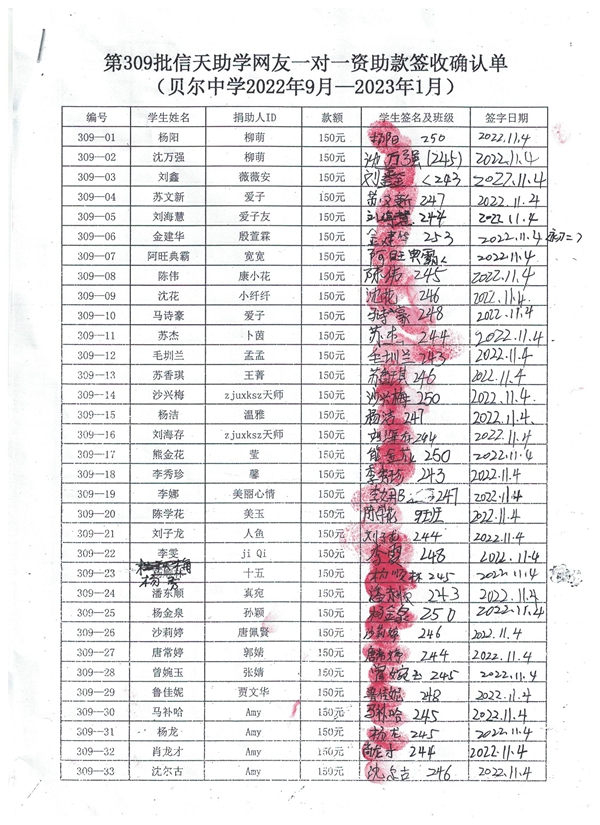 第309批信天助学网友一对一资助款签收确认单
（贝尔中学2022年9月—2023年1月）
编号 学生姓名 捐助人ID 款额 学生签名及班级 签字日期
309—01 杨阳 柳萌 150元 杨阳 250 2022.11.4
309—02 沈万强 柳萌 150元 沈万强(245) 2022.11.4
309—03 刘鑫 薇薇安 150元 刘鑫 <243 2022.11.4
309—04 苏文新 爱子 150元 苏文新 247 2022.11.4
309—05 刘海慧 爱子友 150元 刘海慧 244 2022.11.4
309—06 金建华 殷萱霖 150元 金建华 253 2022.11.4
309—07 阿旺典霸 宽宽 150元 阿旺典霸 2022.11.4
309—08 陈伟 康小花 150元 陈伟 245 2022.11.4
309—09 沈花 小纤纤 150元 沈花 246 2022.11.4
309—10 马诗豪 爱子 150元 马诗豪 248 2022.11.4
309—11 苏杰 卜茵 150元 苏杰 244 2022.11.4
309—12 毛圳兰 孟孟 150元 毛圳兰 243 2022.11.4
309—13 苏香琪 王菁 150元 苏香琪 246 2022.11.4
309—14 沙兴梅 zjuxksz天师 150元 沙兴梅 250 2022.11.4
309—15 杨洁 温雅 150元 杨洁 247 2022.11.4
309—16 刘海存 zjuxksz天师 150元 刘海存 244 2022.11.4
309—17 熊金花 莹 150元 熊金花 250 2022.11.4
309—18 李秀珍 馨 150元 李秀珍 243 2022.11.4
309—19 李娜 美丽心情 150元 李娜 247 2022.11.4
309—20 陈学花 美玉 150元 陈学花 2022.11.4
309—21 刘子龙 人鱼 150元 刘子龙 244 2022.11.4
309—22 李雯 ji Qi 150元 李雯 248 2022.11.4
309—23 十五 150元 245 2022.11.4
309—24 潘东顺 真宛 150元 潘东顺 243 2022.11.4
309—25 杨金泉 孙颖 150元 杨金泉 250 2022.11.4
309—26 沙莉婷 唐佩贤 150元 沙莉婷 246 2022.11.4
309—27 唐常婷 郭婧 150元 唐常婷 244 2022.11.4
309—28 曾婉玉 张婧 150元 曾婉玉 245 2022.11.4
309—29 鲁佳妮 贾文华 150元 鲁佳妮 248 2022.11.4
309—30 马补哈 Amy 150元 马补哈 245 2022.11.4
309—31 杨龙 Amy 150元 杨龙 245 2022.11.4
309—32 肖龙才 Amy 150元 肖龙才 244 2022.11.4
309—33 沈尔古 Amy 150元 沈尔古 246 2022.11.4